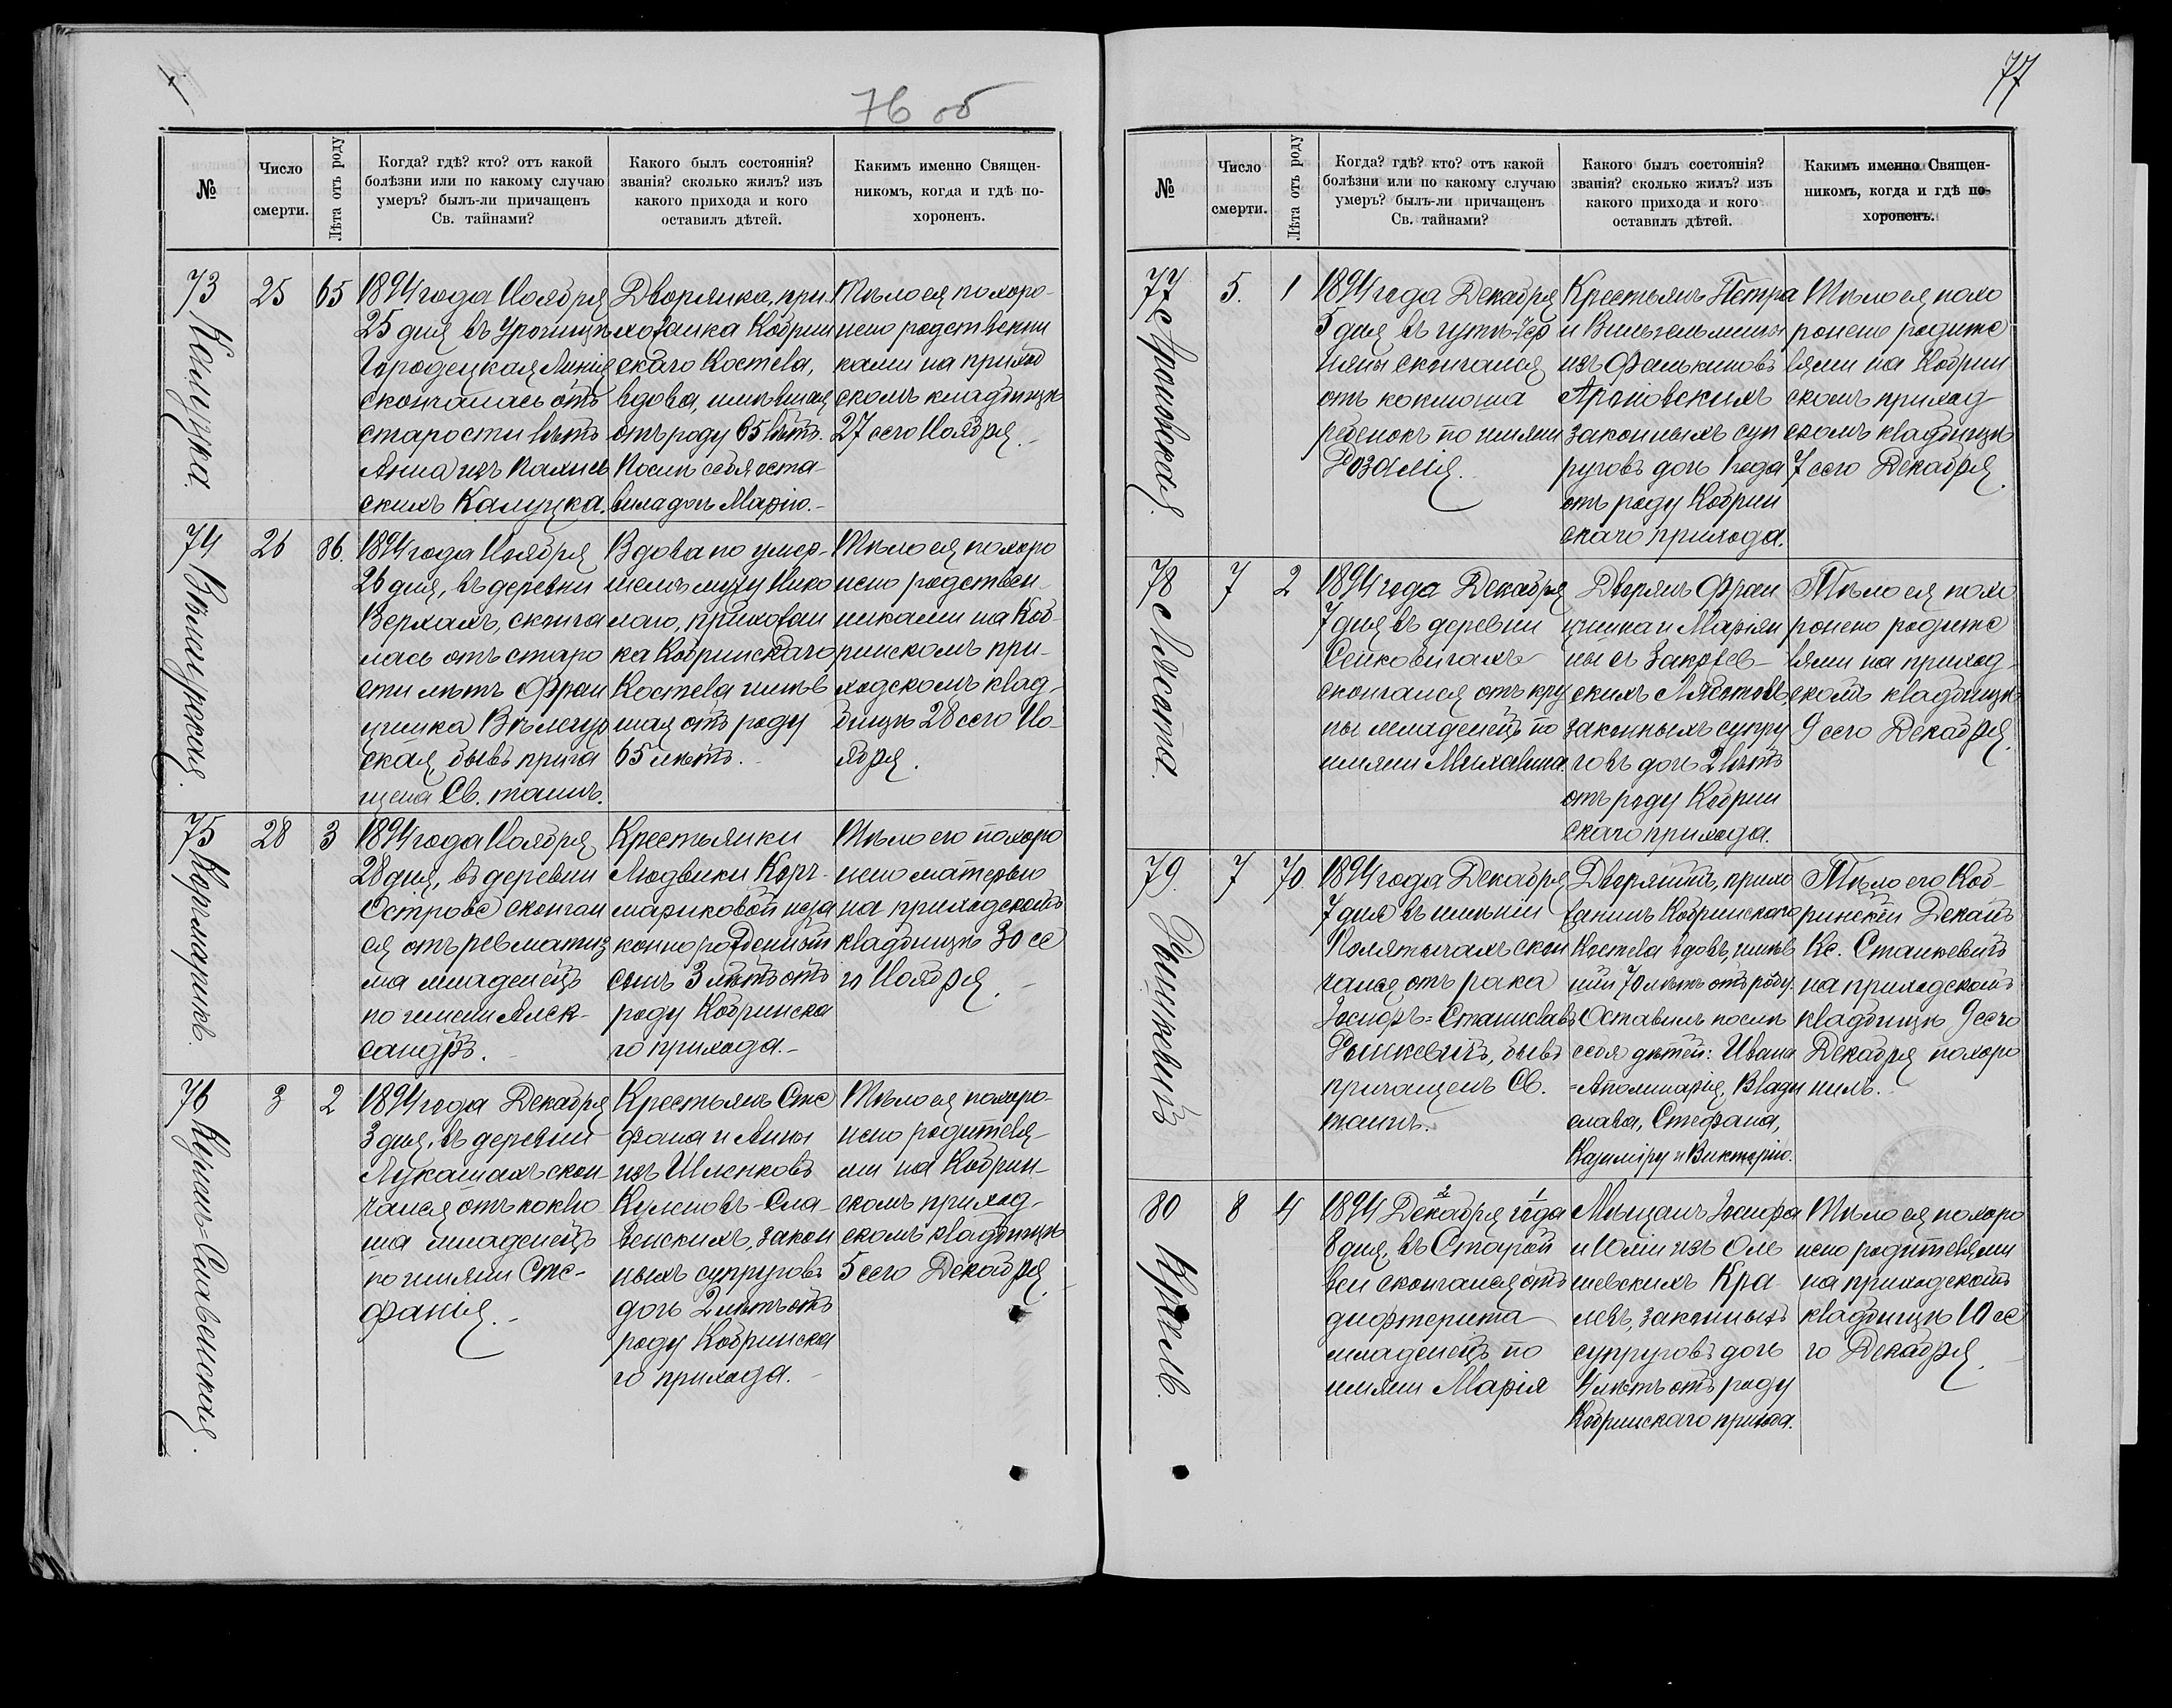 76 об
№
Число
смерти.
Лѣта отъ роду
Когда? гдѣ? кто? отъ какой
болѣзни или по какому случаю
умеръ? былъ-ли причащенъ
Св. тайнами?
Какого былъ состоянія?
званія? сколько жилъ? изъ
какого прихода и кого
оставилъ дѣтей.
Какимъ именно Священ-
никомъ, когда и гдѣ по-
хороненъ.
73
Калицка.
25
65
1894 года Ноября
25 дня въ урочищѣ
Городецкая Линія
скончалась отъ
старости лѣтъ
Анна изъ
скихъ
Дворянка, при
хожанка Кобрин
скаго Костела,
вдова, имѣвшая
отъ роду 65 лѣтъ.
Послѣ себя оста-
вила дочь Марію.-
Тѣло ея похоро-
нено родственни
ками на приход
скомъ кладбищѣ
27 сего Ноября.-
74
26
86.
1894 года Ноября
26 дня, въ деревни
Верхахъ, сконча
лась отъ старо
сти лѣтъ Фран
цишка
ская, бывъ прича
щена Св. таинъ.
Вдова по умер-
шемъ мужу Нико
лаю, прихожан
ка Кобринскаго
Костела имѣв
шая отъ роду
65 лѣтъ.
Тѣло ея похоро
нено родствен-
никами на Коб-
ринскомъ при-
ходскомъ клад-
бищѣ 28 сего Но-
ября.
75
Корчмарикъ.
28
3
1894 года Ноября
28 дня, въ деревни
Островѣ скончал
ся отъ ревматиз
ма младенецъ
по имени Алек-
сандръ.
Крестьянки
Людвики Корч-
мариковой неза
конно рожденный
сынъ 3 лѣтъ отъ
роду Кобринска
го прихода.-
Тѣло его похоро
нено матерью
на приходскомъ
кладбищѣ 30 се
го Ноября.
76
Кулеш-Славенская.
3
2
1894 года Декабря
3 дня, въ деревни
Лукашахъ скон
чался отъ коклю
ша младенецъ
по имяни Сте-
фанія.-
Крестьянъ Сте
фана и Анны
изъ Шленковъ
Кулешовъ-Сла-
венскихъ, закон
ныхъ супруговъ
дочь 2 лѣтъ отъ
роду Кобринска
го прихода.-
Тѣло ея похоро-
нено родителя-
ми на Кобрин-
скомъ приход-
скомъ кладбищѣ
5 сего Декабря.
77
№
Число
смерти.
Лѣта отъ роду
Когда? гдѣ? кто? отъ какой
болѣзни или по какому случаю
умеръ? былъ-ли причащенъ
Св. тайнами?
Какого былъ состоянія?
званія? сколько жилъ? изъ
какого прихода и кого
оставилъ дѣтей.
Какимъ именно Священ-
никомъ, когда и гдѣ по-
хороненъ.
77
Ароновская.
5.
1
1894 года Декабря
5 дня въ
скончался
отъ коклюша
ребенокъ по имяни
Розалія.
Крестьянъ Петра
и Вильгельмины
изъ Фалькиновъ
Ароновскихъ
законныхъ суп
руговъ дочь 1 года
отъ роду Кобрин
скаго прихода.
Тѣло ея похо
ронено родите
лями на Кобрин
скомъ приход-
скомъ кладбищѣ
7 сего Декабря.
78
Лясота.
7
2
1894 года Декабря
7 дня въ деревни
Сенковичахъ
скончался отъ кру
пы младенецъ по
имяни Михалина.
Дворянъ Фран
цишка и Маріан
ны съ Закржев-
скихъ Лясотовъ,
законныхъ супру
говъ дочь 2 лѣтъ
отъ роду Кобрин
скаго прихода.
Тѣло ея похо
ронено родите
лями на приход-
скомъ кладбищѣ
9 сего Декабря.
79.
Рышкевичъ
7
70.
1894 года Декабря
7 дня въ имѣніи
Полятычахъ скон
чался отъ рака
Іосифъ=Станиславъ
Рышкевичъ, бывъ
причащенъ Св.
таинъ.
Дворянинъ, прихо
жанинъ Кобринскаго
Костела вдовъ, имѣв
шій 70 лѣтъ отъ роду.
Оставилъ послѣ
себя дѣтей: Ивана
=Аполинарія, Влади
слава, Стефана,
Казиміру и Викторію.
Тѣло его Коб-
ринскій Деканъ
Кс. Станкевичъ
на приходскомъ
кладбищѣ 9 сего
Декабря похоро
нилъ.
80
Краль.
8
4
2 1
1894 Декабря года
8 дня, въ Старой
вси скончался отъ
дифтерита
младенецъ по
имяни Марія
Мѣщанъ Іосифа
и Юліи изъ Оль
шевскихъ Кра-
левъ, законныхъ
супруговъ дочь
4 лѣтъ отъ роду
Кобринскаго прихода.
Тѣло ея похоро
нено родителями
на приходскомъ
кладбищѣ 10 се
го Декабря.